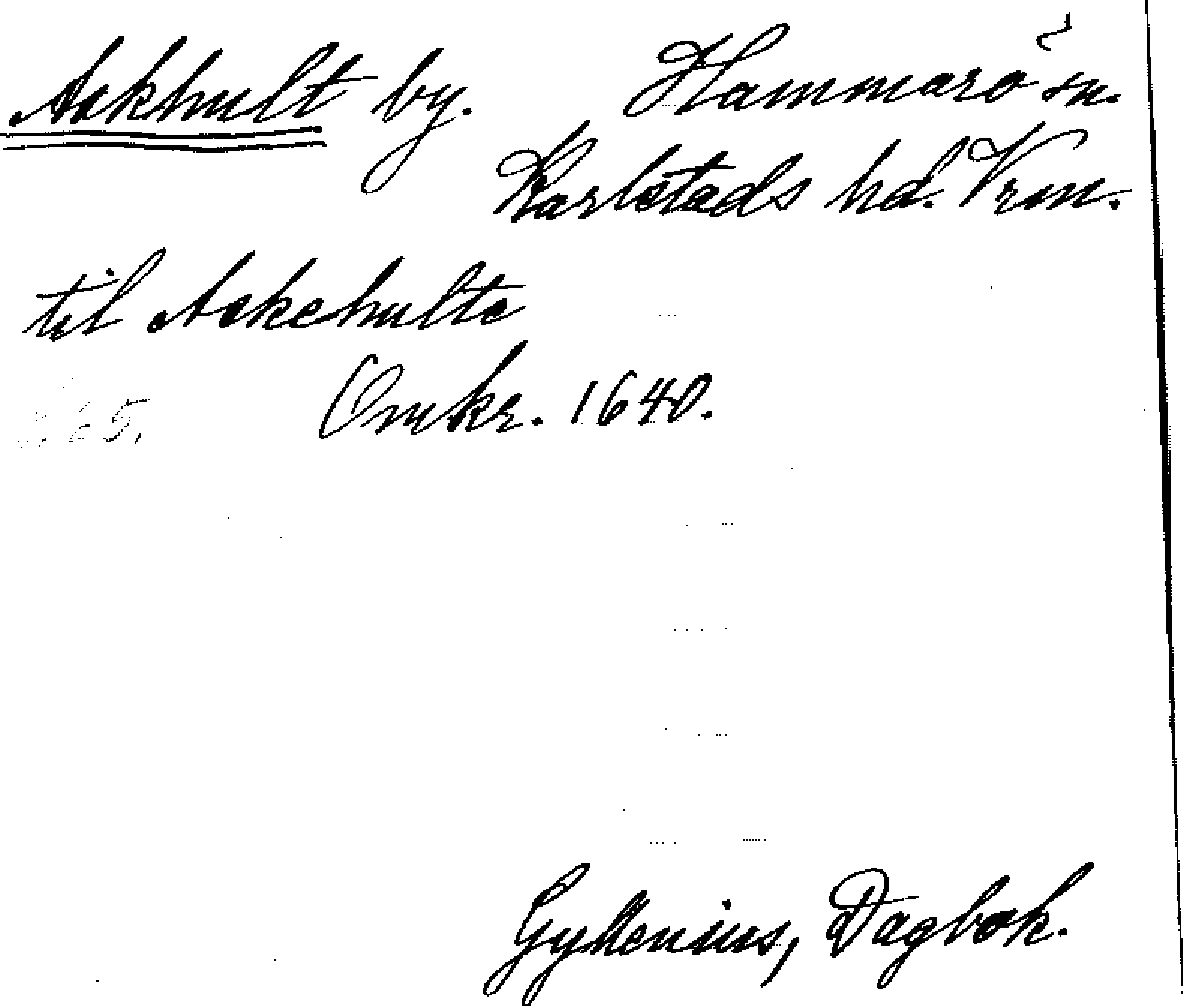 Askhult by. Hammarö sn.
Karlstads hd. Vrm.
til Askehulte
Omkr. 1640.
Gyllenius, Dagbok.